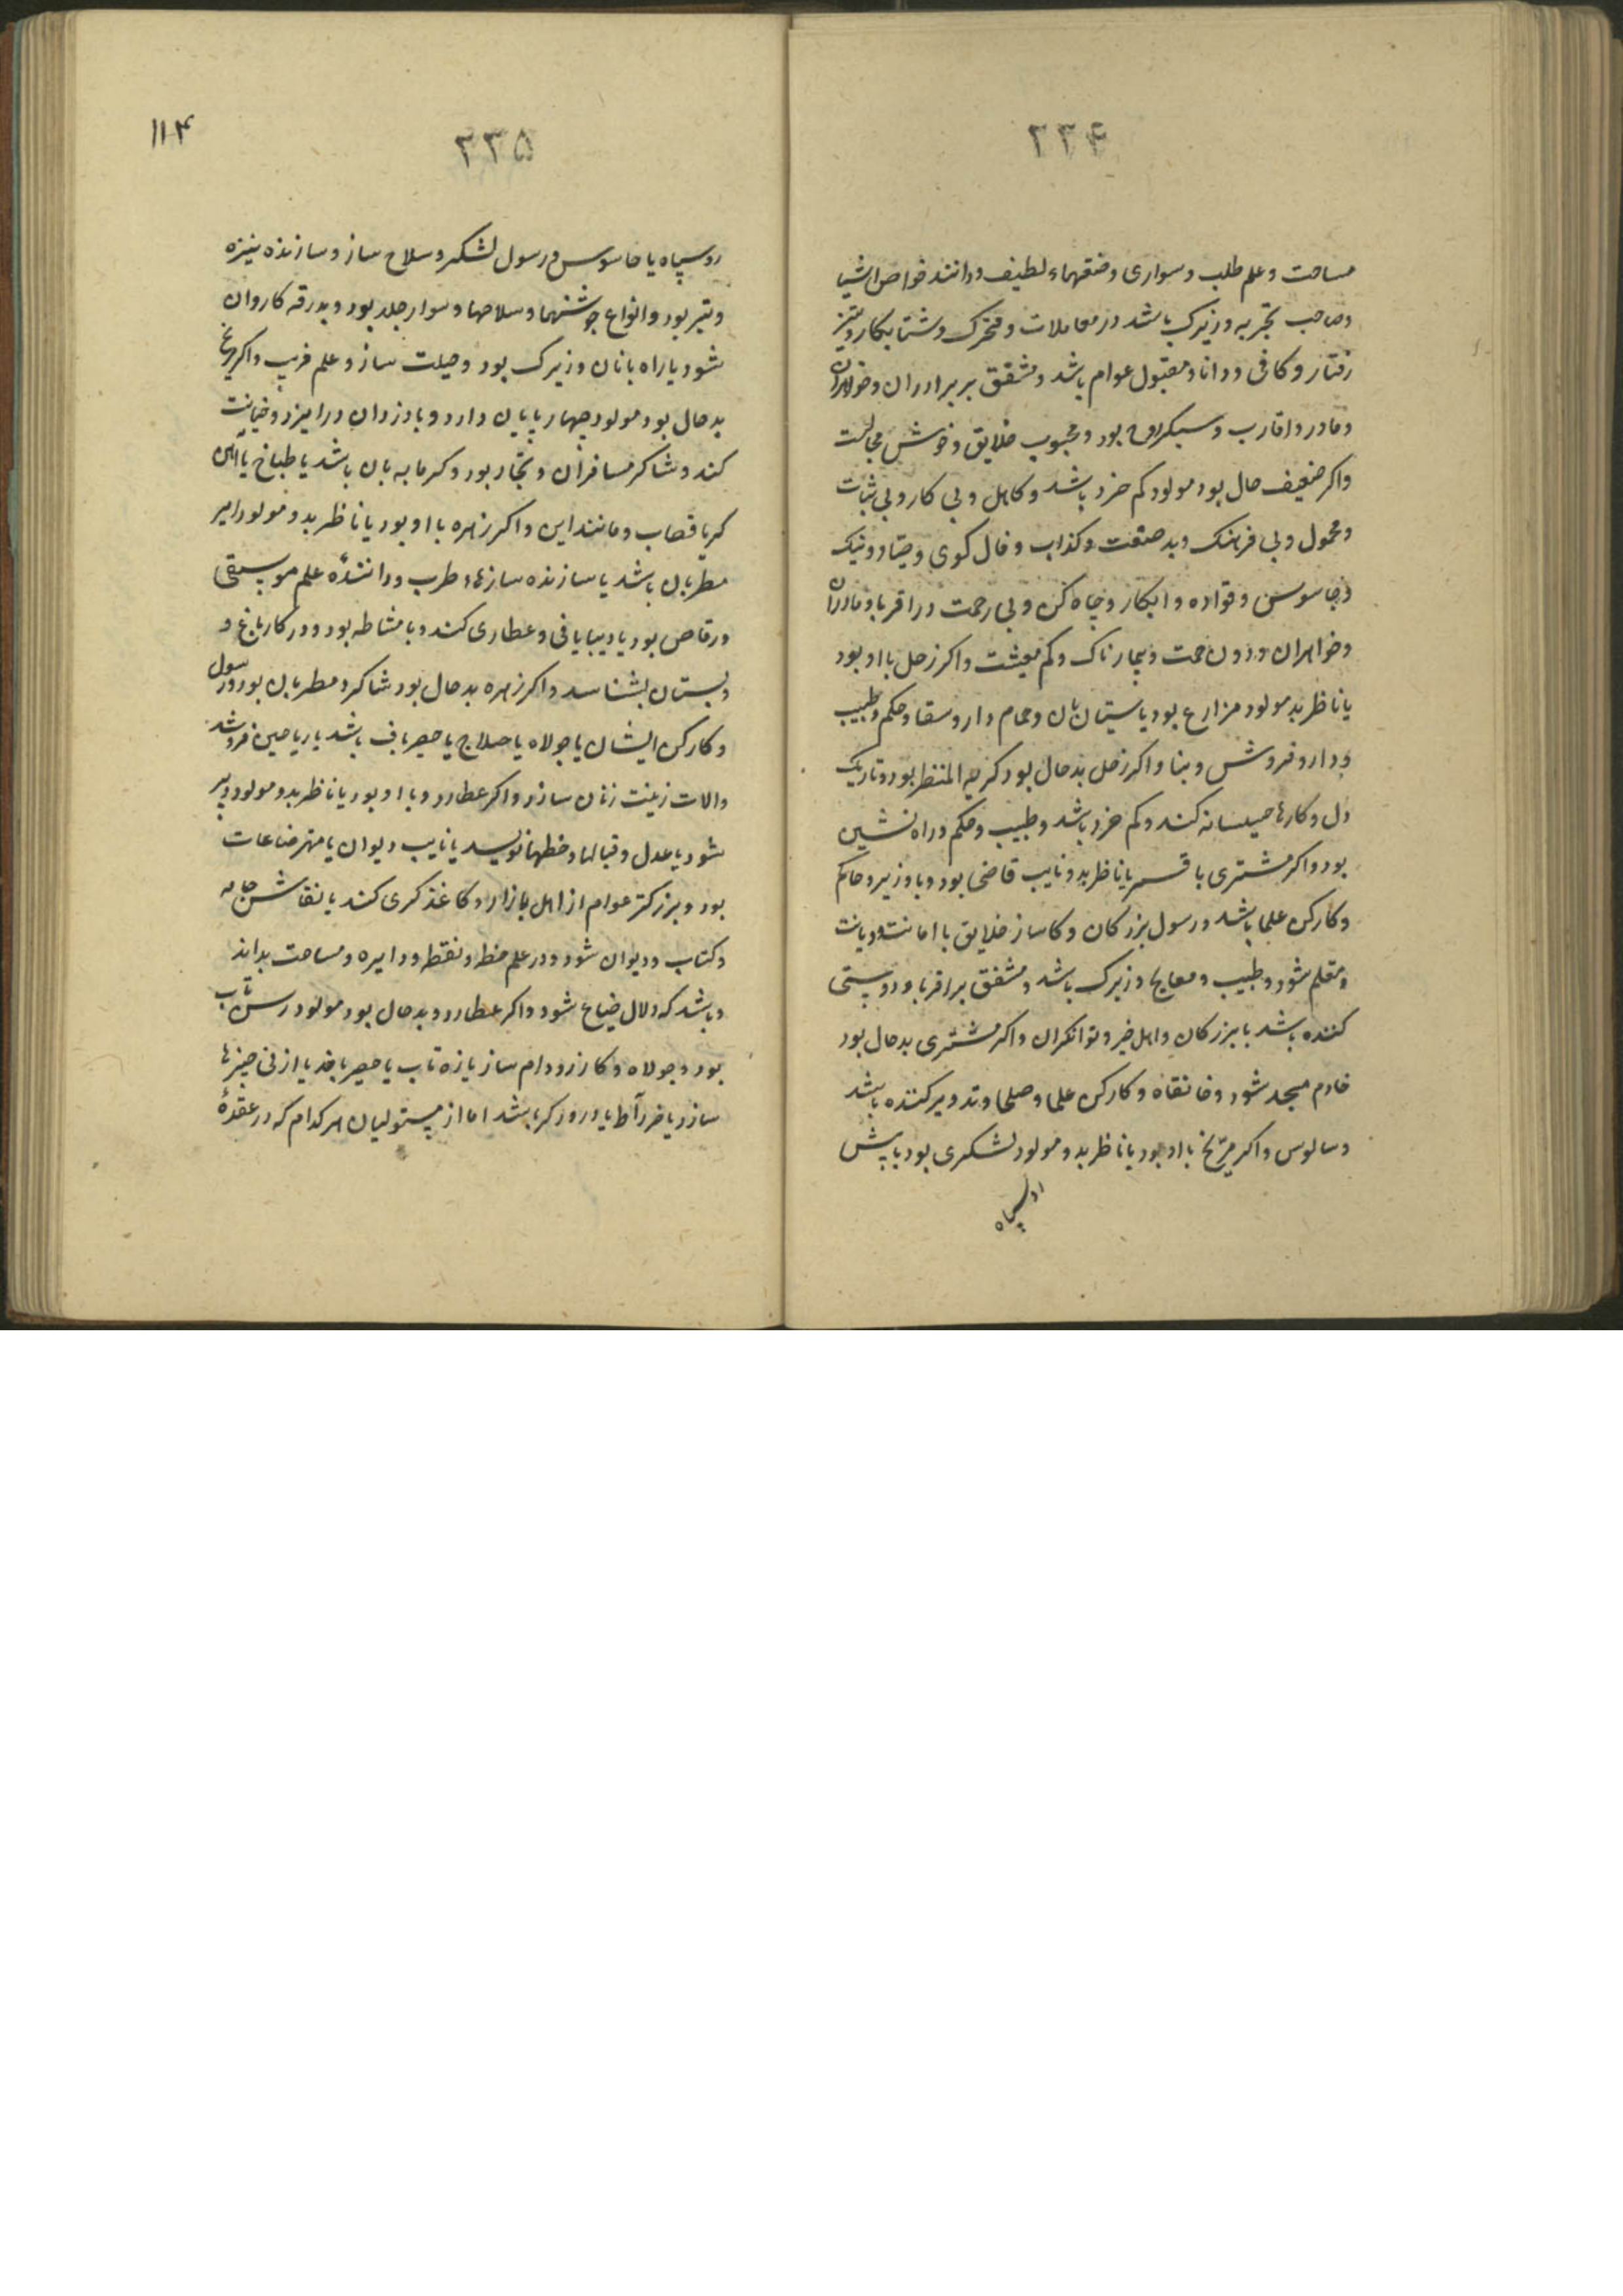 ۲۳۴
مساحت و علم طلب و سواری و صنعتهاء لطیف و دانند خواص اشیا
و صاحب تجربه و زیرک باشد در معاملات و متحرک و شتابکار و تیز
رفتار و کافی و دانا و مقبول عوام باشد و مشفق بر برادران و خواهران
و مادر و اقارب و سبکروح بود و محبوب خلایق و خوش مجالست
واکر ضعیف حال بود مولود کم خرد باشد و کاهل و بی کار و بی ثبات
و مجهول و بی فرهنک و بد صنعت و کذاب و فال کوی و صیاد و پیک
و جاسوس و قواده و ابکار و چاه کن و بی رحمت در اقربا و مادران
و خواهران و دون همت و بیمارناک و کم معیشت واکر زحل با او بود
یا ناظر بد مولود مزارع بود یا بستان بان و حمام دار و سقا و حکیم و طبیب
و دارو فروش و بنا واکر زحل بدحال بود کریه المنظر بود و تاریک
دل و کارها حیلسانه کند و کم خرد باشد و طبیب و حکیم و راه نشین
بود واکر مشتری با قمر یا ناظر بدو نایب قاضی بود و یا وزیر و حاکم
و کارکن علما باشد و رسول بزرکان و کاساز خلایق با امانت و دیانت
و مقلم شود و طبیب و معالج و زیرک باشد و مشفق بر اقربا و دوستی
کننده باشد با بزرکان و اهل خیر و توانکران واکر مشتری بدحال بود
خادم مسجد شود و خانقاه و کارکن علما و صلحا و تدویر کننده باشد
و سالوس واکر مریخ با او بود یا ناظر بدو مولود لشکری بود یا پیش
رو سپاه
۱۱۴
۲۳۵
رو سپاه یا جاسوس و رسول لشکر و سلاح ساز و سازنده نیزه
و تیر بود و انواع جوشنهما و سلاحها و سوار جلد بود و بدرقه کاروان
شود یا راه بانان و زیرک بود و حیلت ساز و علم فریب واکر مریخ
بدحال بود مولود چهارپایان دارد و با دزدان درامیزد و خیانت
کند و شاکر مسافران و تجّار بود و کرمابه بان باشد یا طباخ یا آهن
کر یا قصاب و مانند این واکر زهره با او بود یا ناظر بدو مولود امیر
مطربان باشد یا سازنده سازهاء طرب و دانندهٔ علم موسیقی
و رقاص بود یا دیبا بافی و عطاری کند و یا مشاطه بود و در کار باغ و
و بستان بشناسد واکر زهره بدحال بود شاکرد مطربان بود و رسول
و کارکن ایشان یا جولاه یا حلاج یا حصیرباف باشد یا ریاحین فروشد
والات زینت زنان سازد واکر عطارد و با او بود یا ناظر بدو مولود دبیر
شود یا عدل و قبالها و خطها نویسد یا نایب دیوان یا مهتر صناعات
بود و بزرکتر عوام از اهل بازار و کاغذ کری کند یا نقاش جامه
و کتاب و دیوان شود و در علم خط و نقطه و دایره و مساحت بداند
و باشد که دلال ضیاع شود واکر عطارد و بدحال بود مولود رسن تاب
بود و جولاه و کازر و دام ساز یا زه تاب یا حصیر بافد یا از نی چیزها
سازد یا خراط یا درودکر باشد اما از مستولیان هر کدام که در عقدهٔ